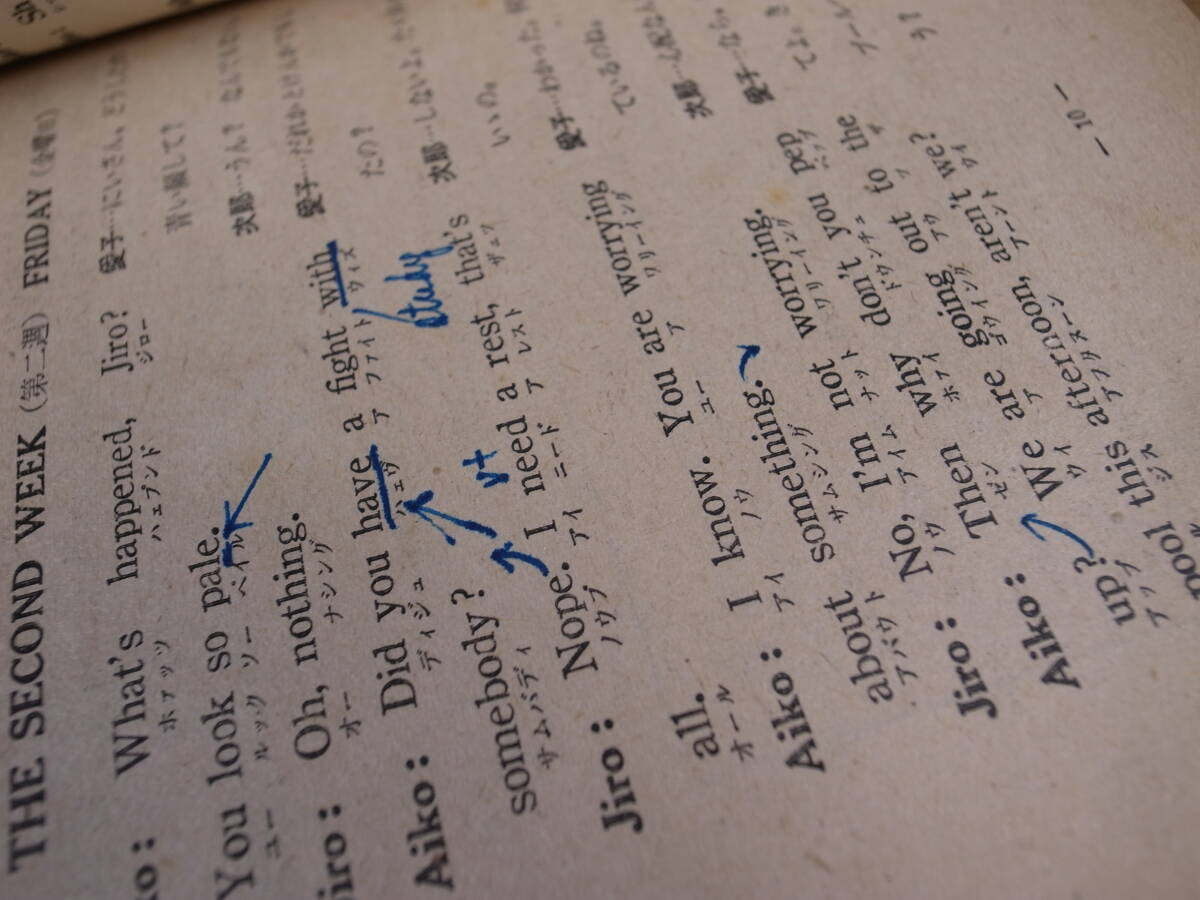 THE SECOND WEEK (第二週) FRIDAY (金曜日)
What's happened, Jiro?
ホァッツ ハェプンド ジロー
You look so pale.
ユー ルック ソー ペイル
Jiro: Oh, nothing.
オー ナシング
Aiko: Did you have a fight with
ディジュ ハェヴ ア ファイト ウィズ
study
somebody?
サムバディ
Jiro: Nope. I need a rest, that's
ノウプ アイ ニード ア レスト ザェツ
all.
オール
Aiko: I know. You are worrying
アイ ノウ ユー ア ワリーイング
about something.
アバウト サムシング
Jiro: No, I'm not worrying.
ノウ アイム ナット ワリーイング
Aiko: Then why don't you pep
ゼン ホワイ ドウンチュ ペップ
up? We are going out to the
アップ ウイ ア ゴウイング アウ
pool this afternoon, aren't we?
ジス アフタヌーン アーント ウイ
愛子…にいさん。どうした
青い顔して?
次郎…うん? なんでもない
愛子…だれかとけんかでも
たの?
次郎…しないよ。
いゝの。
愛子…わかった。
ているのね。
次郎…心配なん
愛子…なら、
てよ。
プール
う?
— 10 —